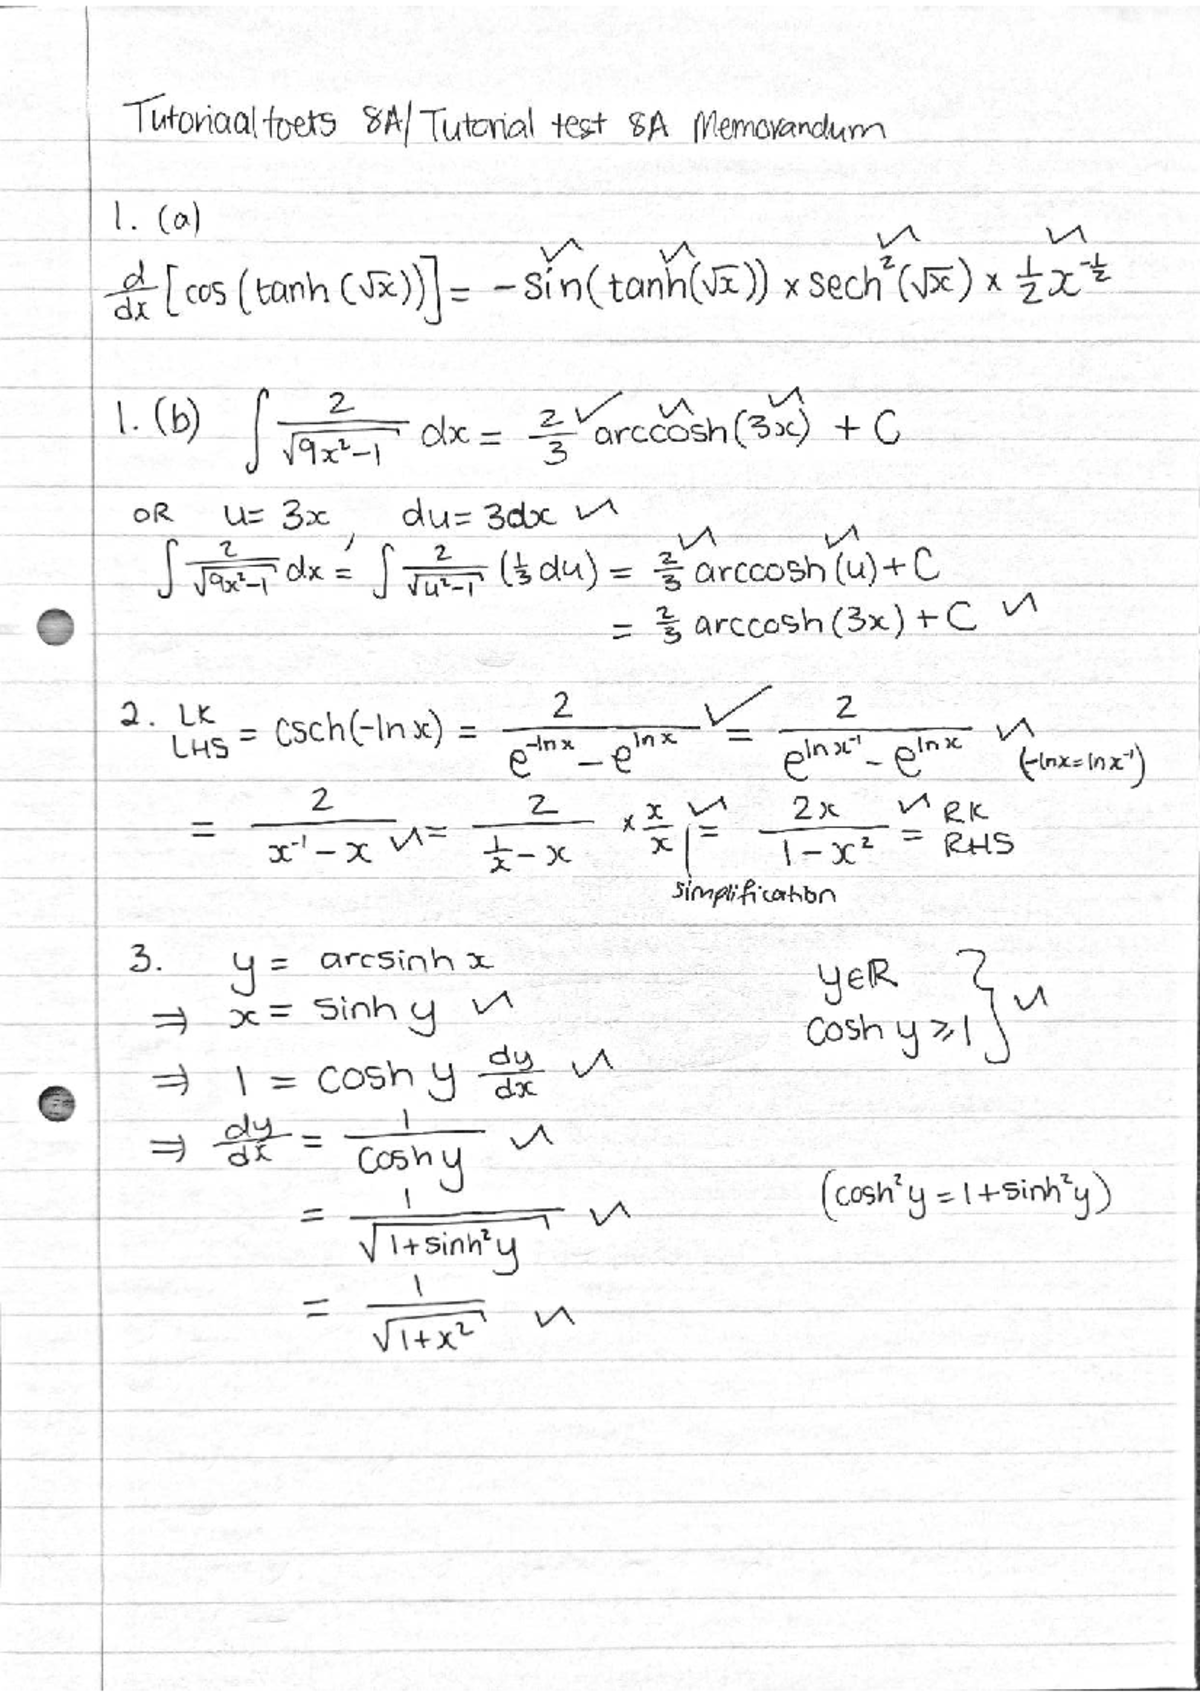 Tutoriaaltoets 8A/Tutorial test 8A Memorandum
1. (a)
d/dx [cos(tanh(√x))] = -sin(tanh(√x)) × sech²(√x) × 1/2 x^(-1/2)
1. (b) ∫ 2/√(9x²-1) dx = 2/3 arccosh(3x) + C
OR u = 3x, du = 3dx
∫ 2/√(9x²-1) dx = ∫ 2/√(u²-1) (1/3 du) = 2/3 arccosh(u) + C
= 2/3 arccosh(3x) + C
2. LK
LHS = csch(-ln x) = 2/(e^(-ln x) - e^(ln x)) = 2/(e^(ln x⁻¹) - e^(ln x)) (-ln x = ln x⁻¹)
= 2/(x⁻¹ - x) = 2/(1/x - x) × x/x = 2x/(1 - x²) = RK
RHS
simplification
3. y = arcsinh x y∈R
⇒ x = sinh y cosh y ≥ 1
⇒ 1 = cosh y dy/dx
⇒ dy/dx = 1/cosh y
= 1/√(1+sinh²y) (cosh²y = 1+sinh²y)
= 1/√(1+x²)